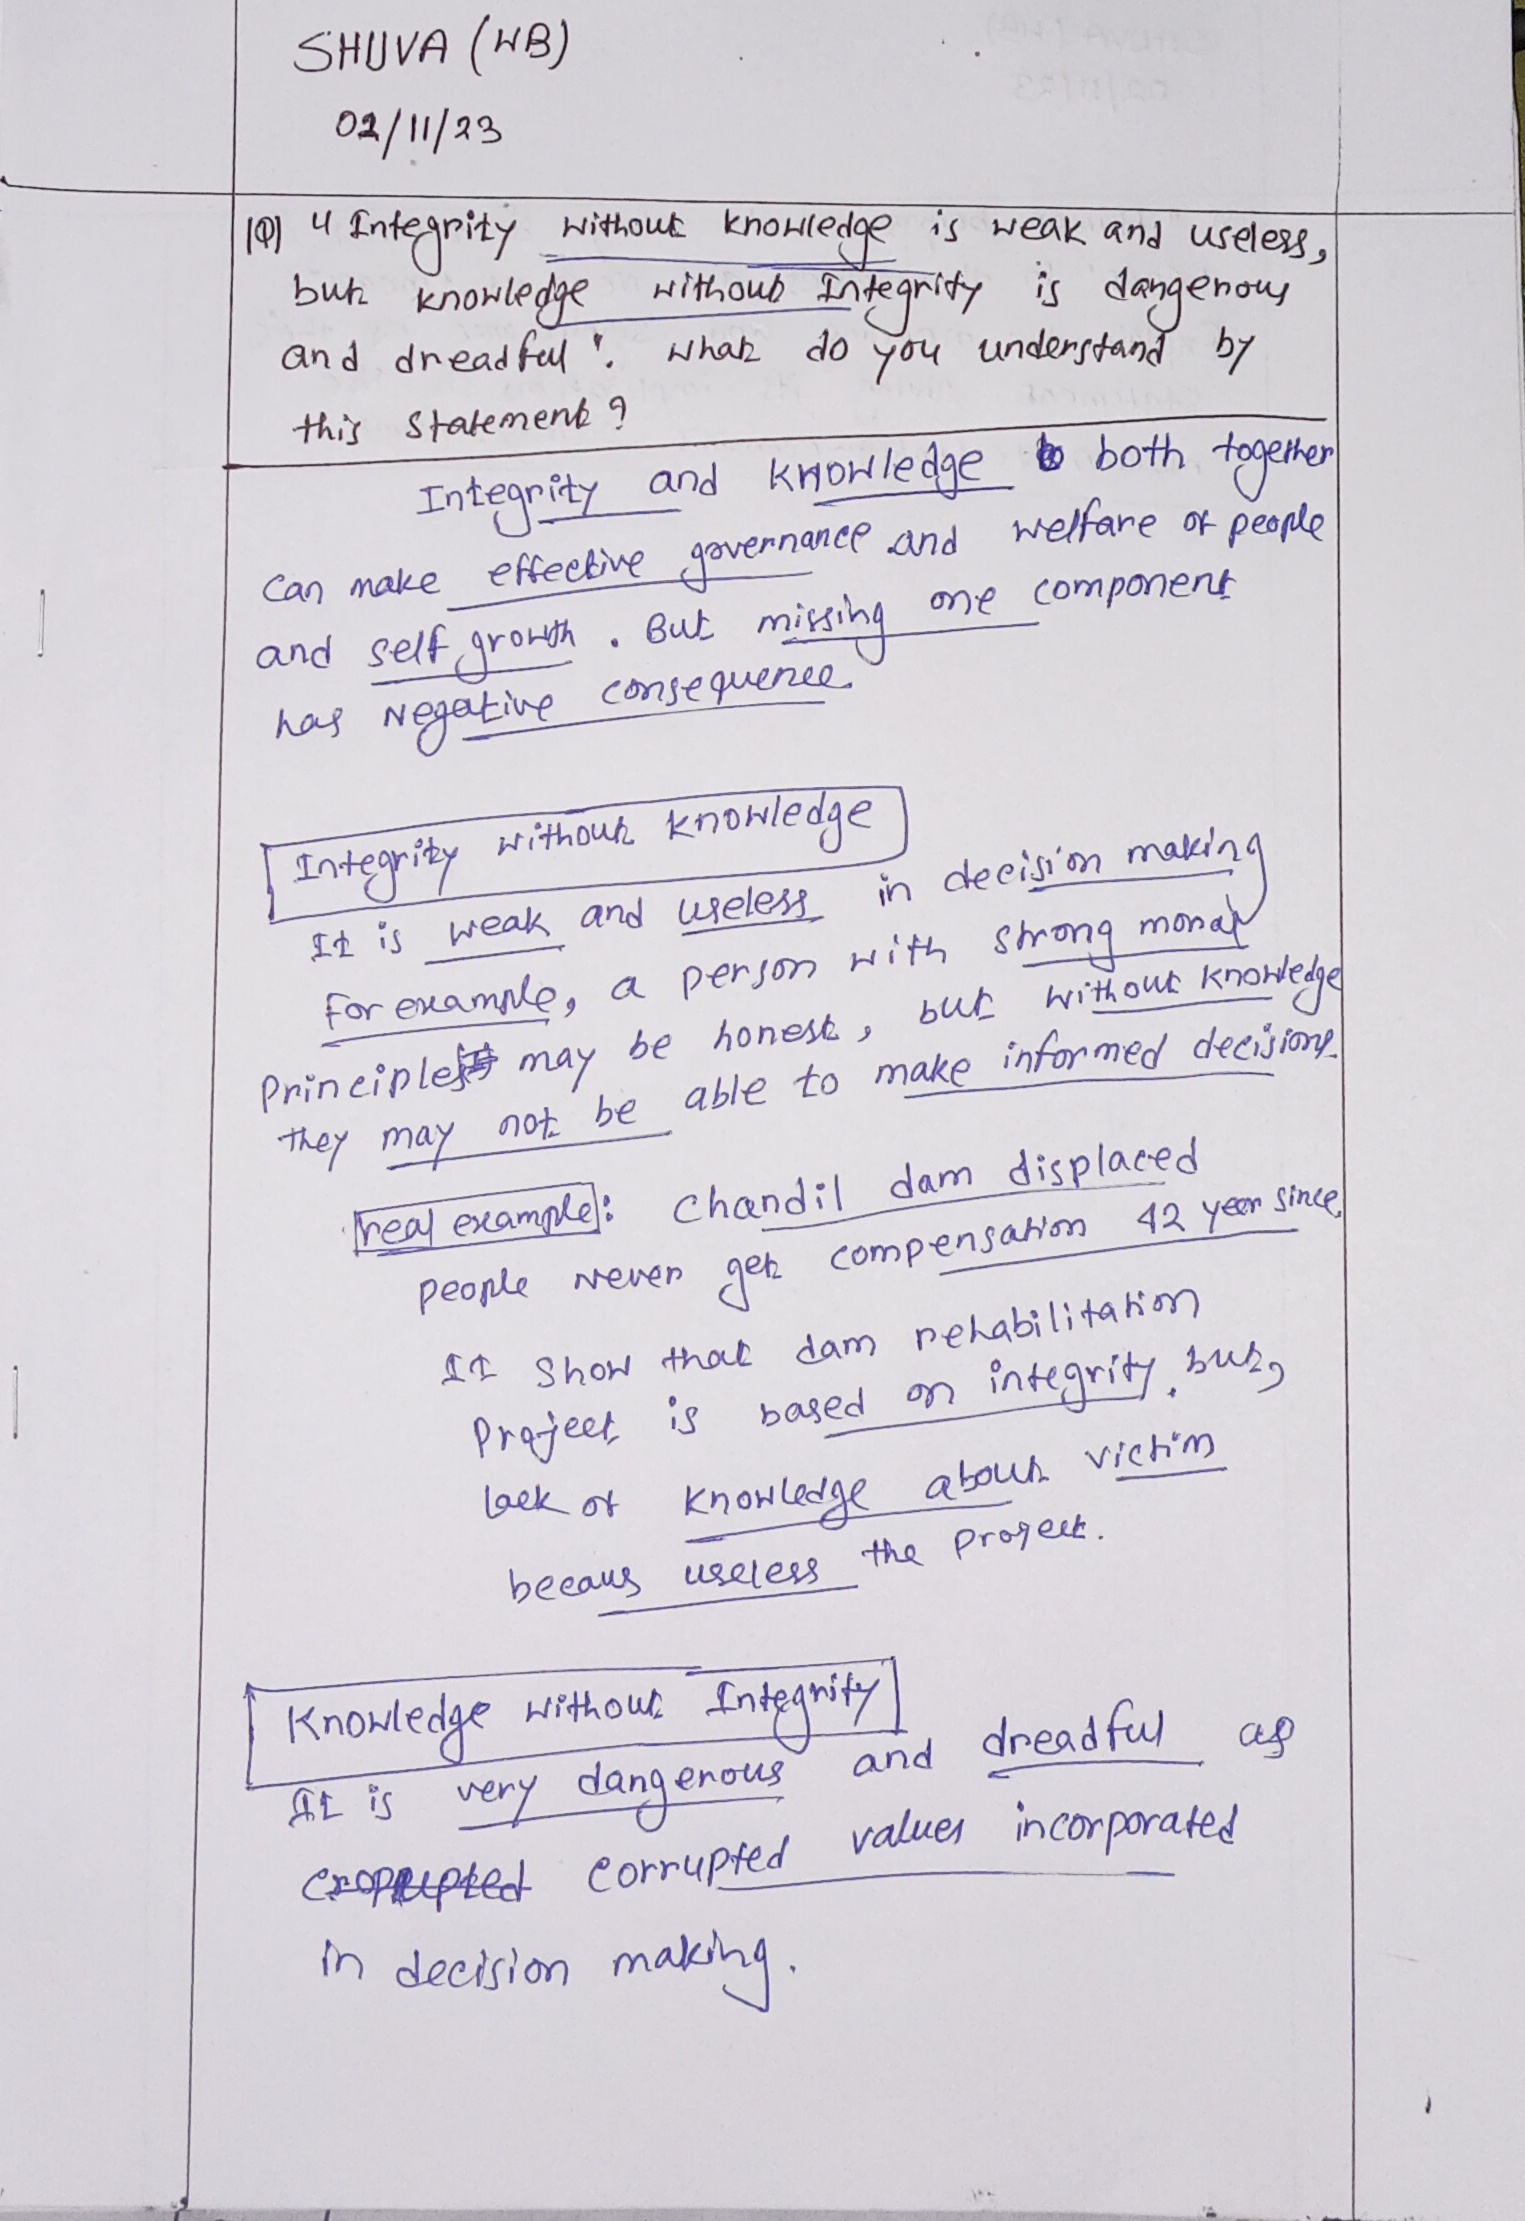 SHUVA (WB)
02/11/23
1Q) "Integrity without knowledge is weak and useless,
but knowledge without Integrity is dangerous
and dreadful". What do you understand by
this statement?
Integrity and knowledge both together
can make effective governance and welfare of people
and self growth. But missing one component
has Negative consequence.
Integrity without knowledge
It is weak and useless in decision making
for example, a person with strong moral
principles may be honest, but without knowledge
they may not be able to make informed decisions.
real example: Chandil dam displaced
people never get compensation 42 year since,
It show that dam rehabilitation
project is based on integrity, but,
lack of knowledge about victim
becaus useless the project.
Knowledge without Integrity
It is very dangerous and dreadful as
corrupted values incorporated
in decision making.